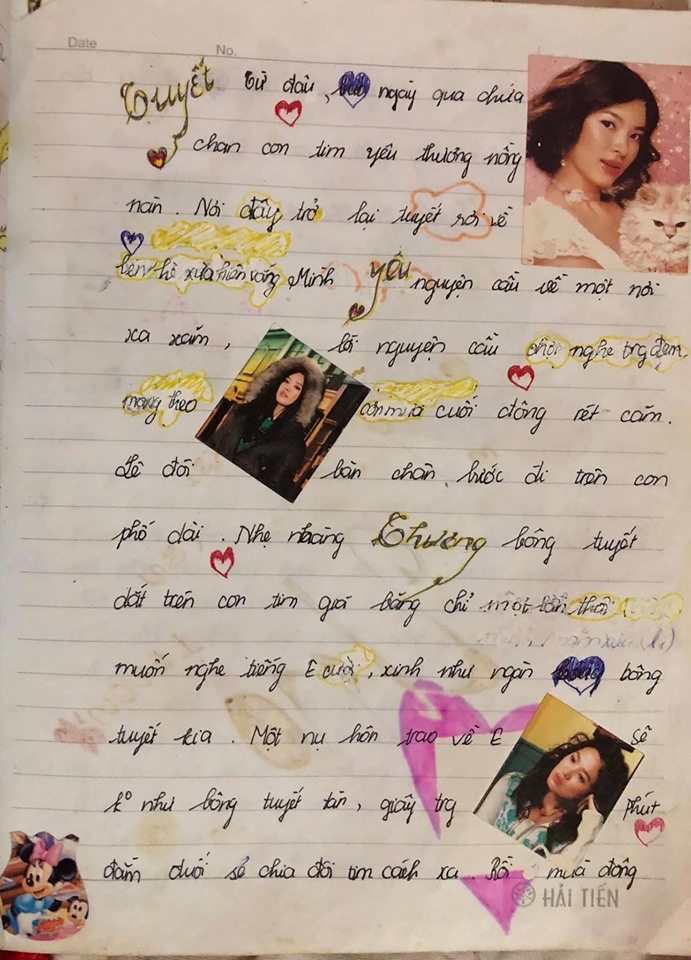 Date No.
Tuyết Từ đâu, ngày qua chứa
chan con tim yêu thương nồng
nàn. Nơi đây trở lại tuyết rơi về
bên hè xưa hiên vắng Minh yêu nguyện cầu về một nơi
xa xăm, lời nguyện cầu chợt nghe trg đêm.
mang theo cơn mưa cuối đông rét căm.
Lê đôi bàn chân, bước đi trên con
phố dài. Nhẹ nhàng Thương bông tuyết
dắt trên con tim giá băng chỉ một lần thôi
muốn nghe tiếng E cười, xinh như ngàn bông
tuyết kia. Một nụ hôn trao về E sẽ
ko như bông tuyết tàn, giây trg phút
đắm đuối sẽ chia đôi tim cách xa. Rồi mùa đông
HẢI TIẾN